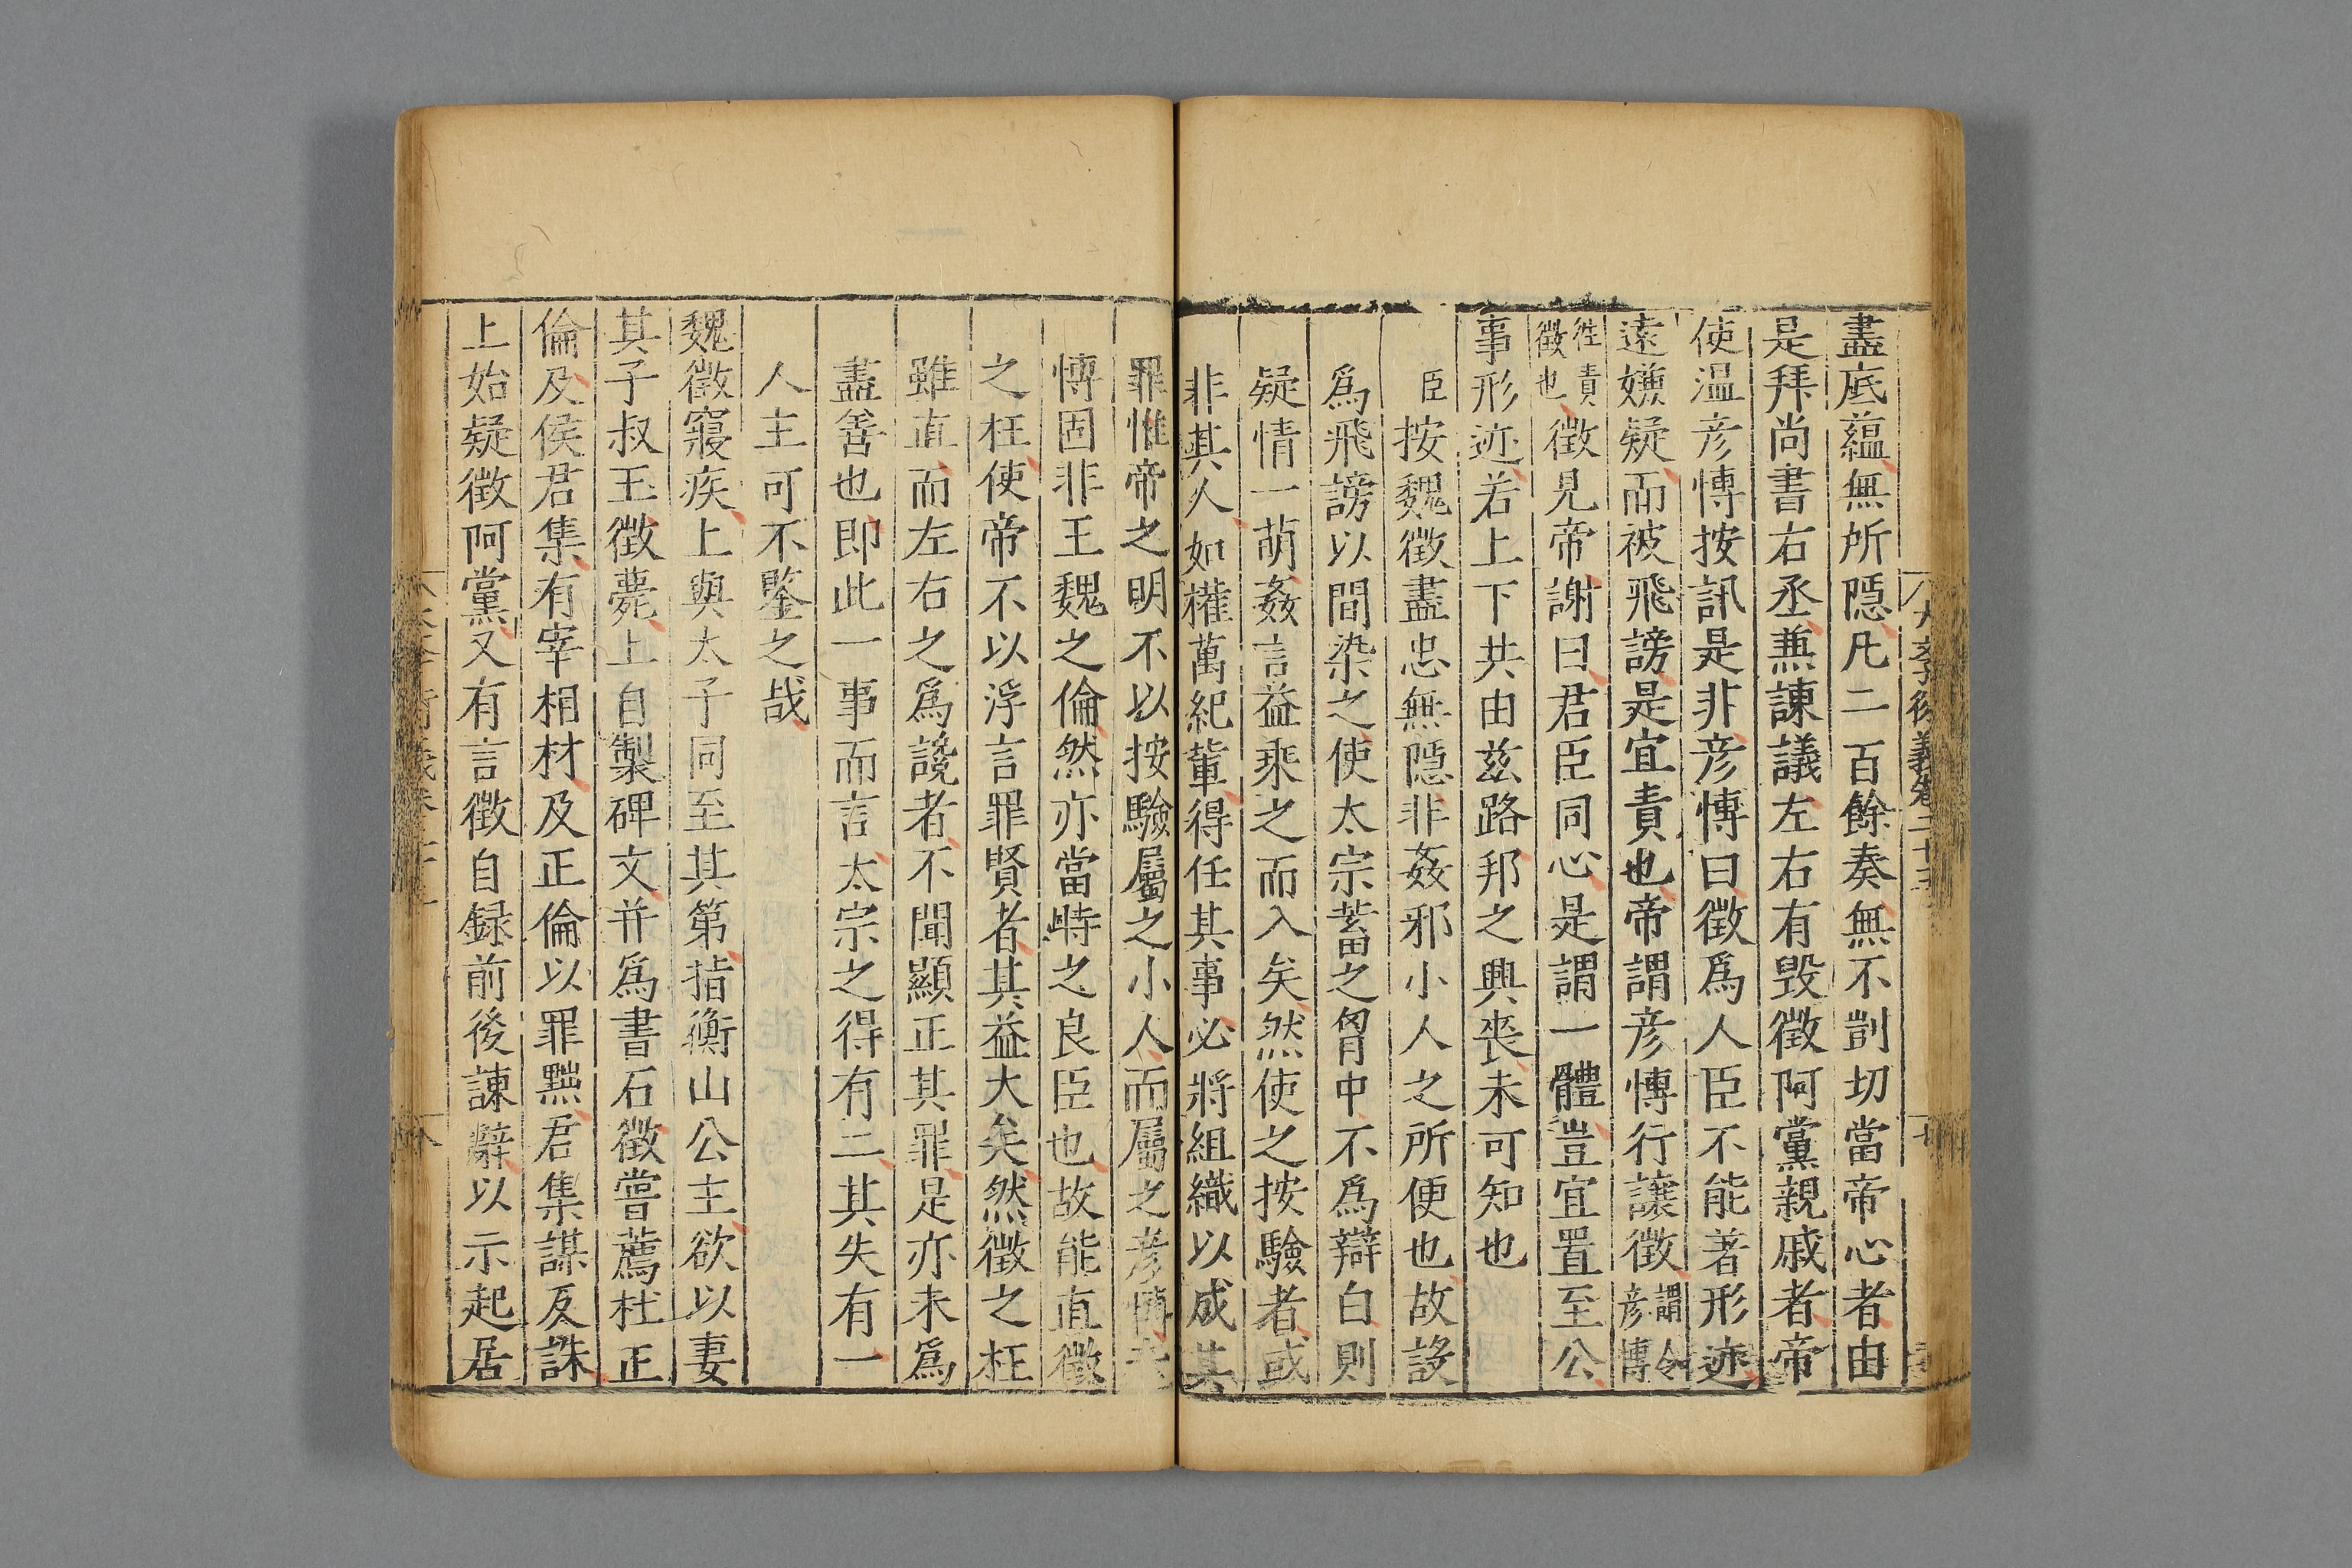 盡底蘊無所隱凡二百餘奏無不剴切當帝心者由
是拜尚書右丞兼諫議左右有毀徵阿黨親戚者帝
使温彦愽按訊是非彦愽曰徵爲人臣不能著形迹
遠嫌疑而被飛謗是宜責也帝謂彦愽行讓徵謂令彦博
徃責徵也徵見帝謝曰君臣同心是謂一體豈宜置至公
事形迹若上下共由兹路邦之興喪未可知也
臣按魏徵盡忠無隱非姦邪小人之所便也故設
爲飛謗以間染之使太宗蓄之胷中不爲辯白則
疑情一萌姦言益乗之而入矣然使之按驗者或
非其人如權萬紀輩得任其事必將組織以成其
罪惟帝之明不以按驗屬之小人而屬之彦愽
愽固非王魏之倫然亦當時之良臣也故能直徵
之枉使帝不以浮言罪賢者其益大矣然徵之枉
雖直而左右之爲讒者不聞顯正其罪是亦未爲
盡善也即此一事而言太宗之得有二其失有一
人主可不鑒之哉
魏徵寢疾上與太子同至其第指衡山公主欲以妻
其子叔玉徵薨上自製碑文并爲書石徵嘗薦杜正
倫及侯君集有宰相材及正倫以罪黜君集謀反誅
上始疑徵阿黨又有言徵自録前後諫辭以示起居